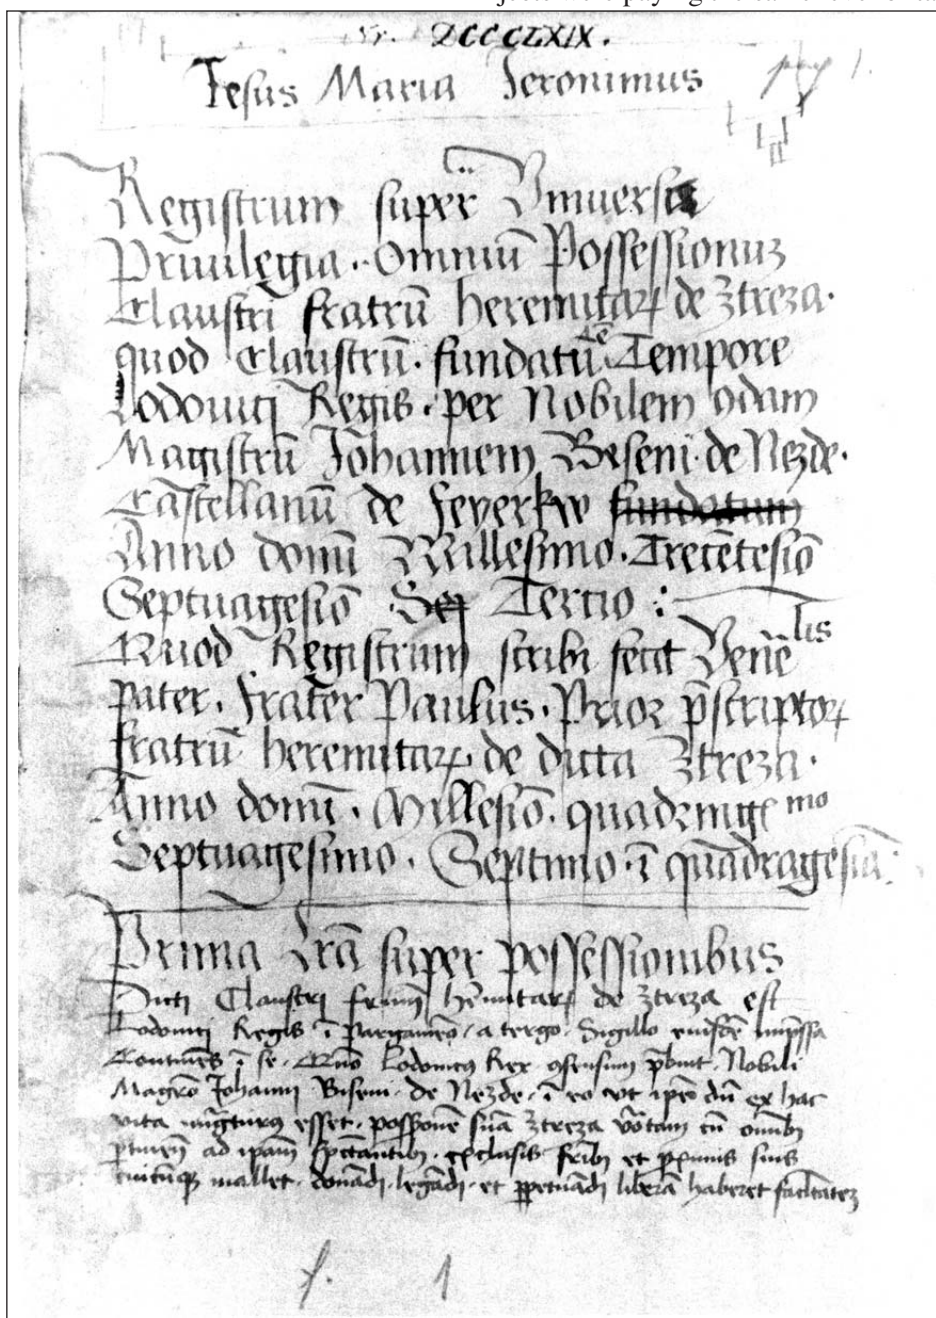 ZCCCCLXIX.
Jesus Maria Jeronimus
Registrum super Vniuersa
Priuilegia · Omniū Possessionuz
Claustri fratrū heremitarꝝ de Ztreza ·
quod Claustrū · fundatū ē Tempore
Lodouici Regis · per Nobilem qdam
Magistrū Johannem Biseni · de Nezde ·
Castellanū de Feyerkw fundatum
Anno domī Millesimo · Trecētesīo
Septuagesīo · Tertio :
Quod Registrum scribi fecit Venēlis
pater · Frater Paulus · Prior p̄scriptorꝝ
fratrū heremitarꝝ de dicta Ztreza ·
Anno domī · Millesīo · quadringēmo
Septuagesimo · Septimo · ī quadragesīa :
Prima lr̄a super possessionibus
Dicti Claustri frm̄ hēmitarꝝ de Ztreza est
Lodouici Regis ī Pargameō · a tergo · Sigillo eiusdē imp̄ssa
Continēs ī se · Quō Lodouicus Rex ꝯsensum p̄buit · Nobili
Magrō Johanni Biseni · de Nezde · ī eo vt ipē dū ex hac
vita migͣturus esset · possionē suā Ztreza vo̅tam cū om̄ibꝫ
ꝑtinen̄ ad ipam̄ spectantibꝫ · exclusis fribꝫ et ꝓximis suis
cuicūqꝫ mallet · donādi · legādi · et ꝑpetuādi liberā haberet facltatez
1